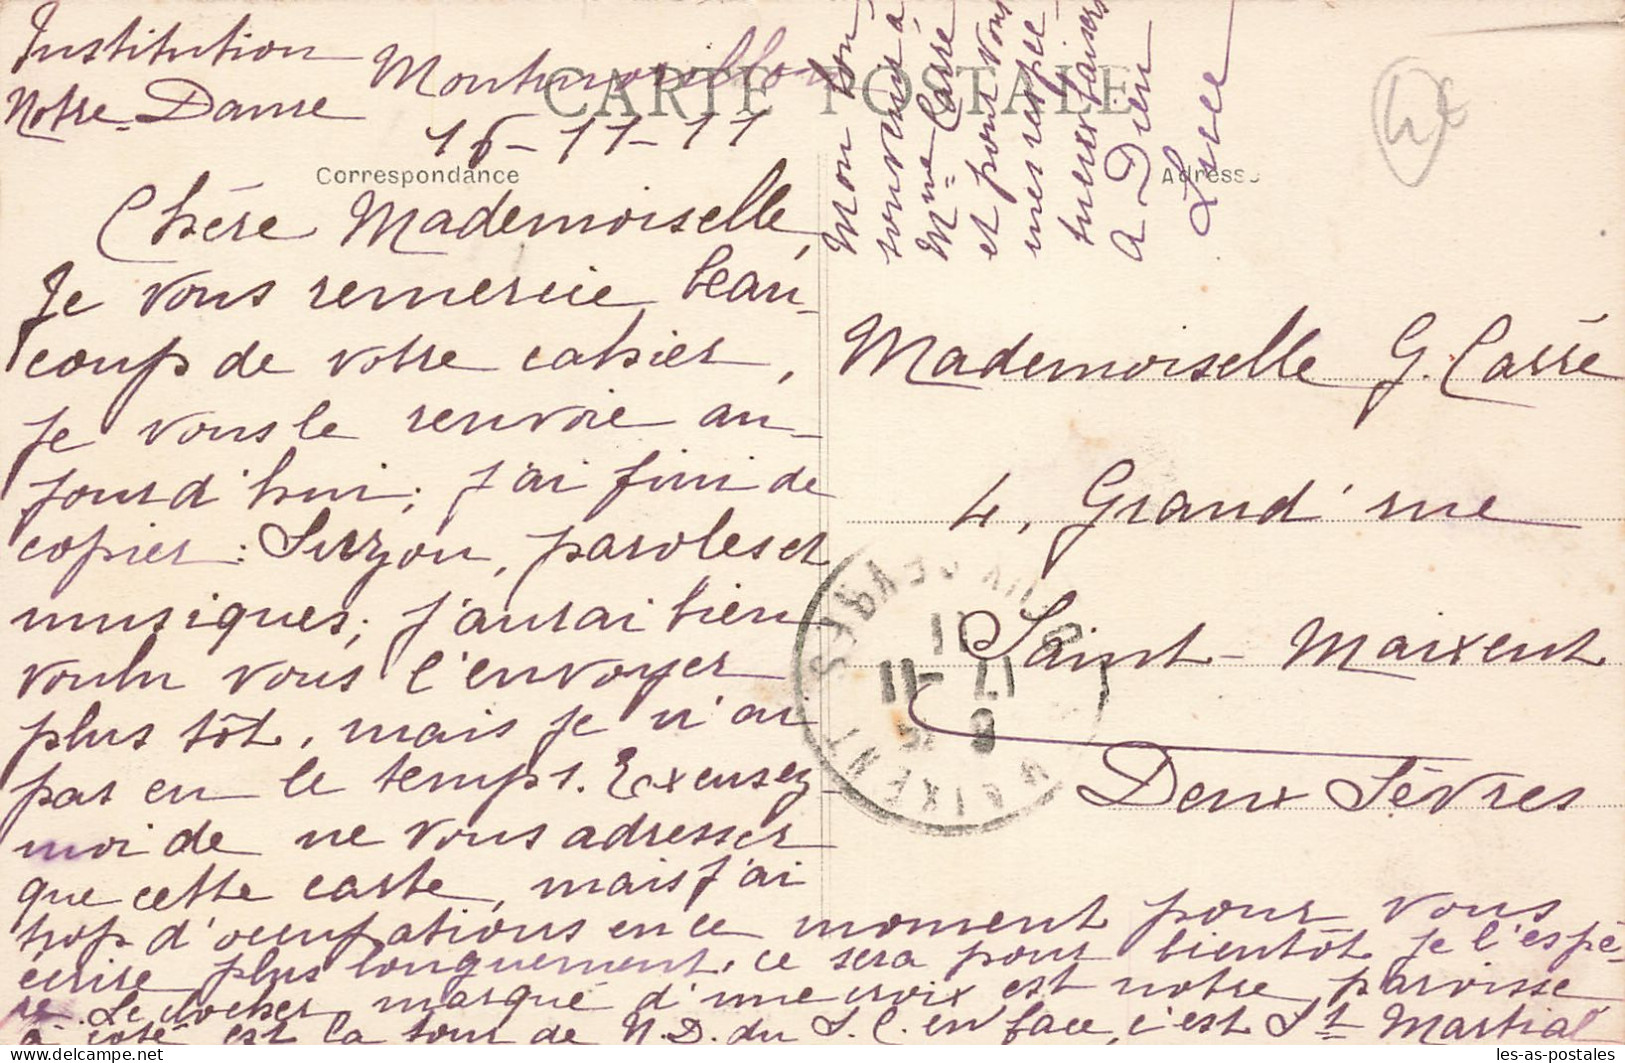 CARTE POSTALE
Correspondance
Adresse
Institution
Notre-Dame Montmorillon
16-11-11
Chère Mademoiselle,
Je vous remercie beau-
coup de votre cahier,
je vous le renvoie au-
jourd'hui; j'ai fini de
copier: Suzon, paroles et
musiques; j'aurai bien
voulu vous l'envoyer
plus tôt, mais je n'ai
pas eu le temps. Excusez
moi de ne vous adresser
que cette carte, mais j'ai
trop d'occupations en ce moment pour vous
écrire plus longuement, ce sera pour bientôt je l'espè-
re. Le clocher marqué d'une croix est notre paroisse,
à côté est la tour de N.D. du S.C. en face, c'est St Martial
Mon bon
souvenir à
Mme Carré
et pour vous
mes respec
tueux baisers
A Dieu
Luce
Mademoiselle G. Carré
4, Grand'rue
Saint-Maixent
Deux Sèvres
11
17 -11
8
les-as-postales.com